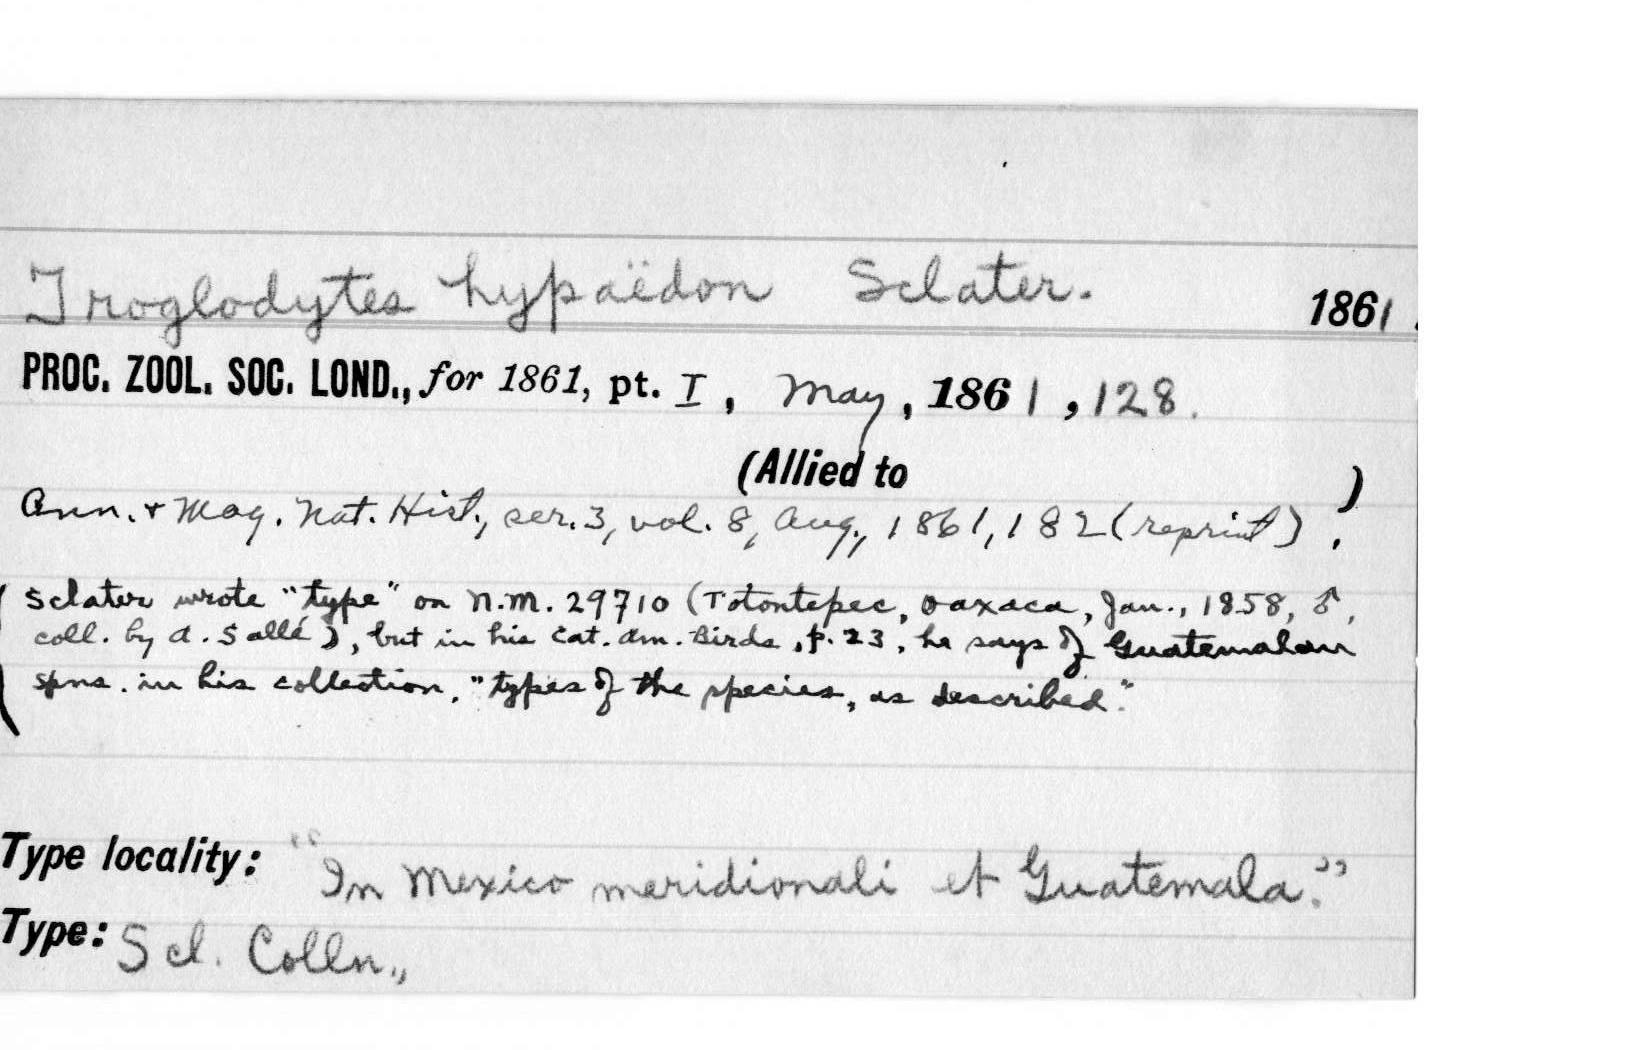 Troglodytes hypaëdon Sclater. 1861.
PROC. ZOOL. SOC. LOND., for 1861, pt. I, May, 1861, 128.
(Allied to )
Ann. + Mag. Nat. Hist., ser. 3, vol. 8, Aug., 1861, 182 (reprint).
(Sclater wrote "type" on N.M. 29710 (Totontepec, Oaxaca, Jan., 1858, ♂,
coll. by A. Sallé), but in his Cat. Am. Birds, p. 23, he says of Guatemalan
spns. in his collection, "types of the species, as described."
Type locality: "In Mexico meridionali et Guatemala."
Type: Scl. Colln.,